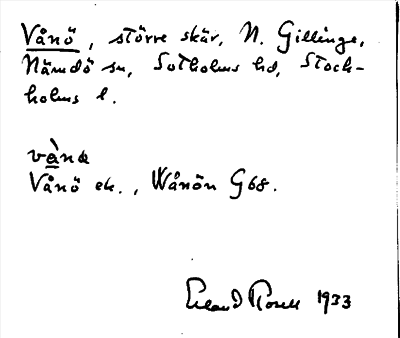 Vånö, större skär, N. Gillinge,
Nämdö sn, Sotholms hd, Stock-
holms l.
vànɷ
Vånö ek., Wånön G68.
Erland Rosell 1933